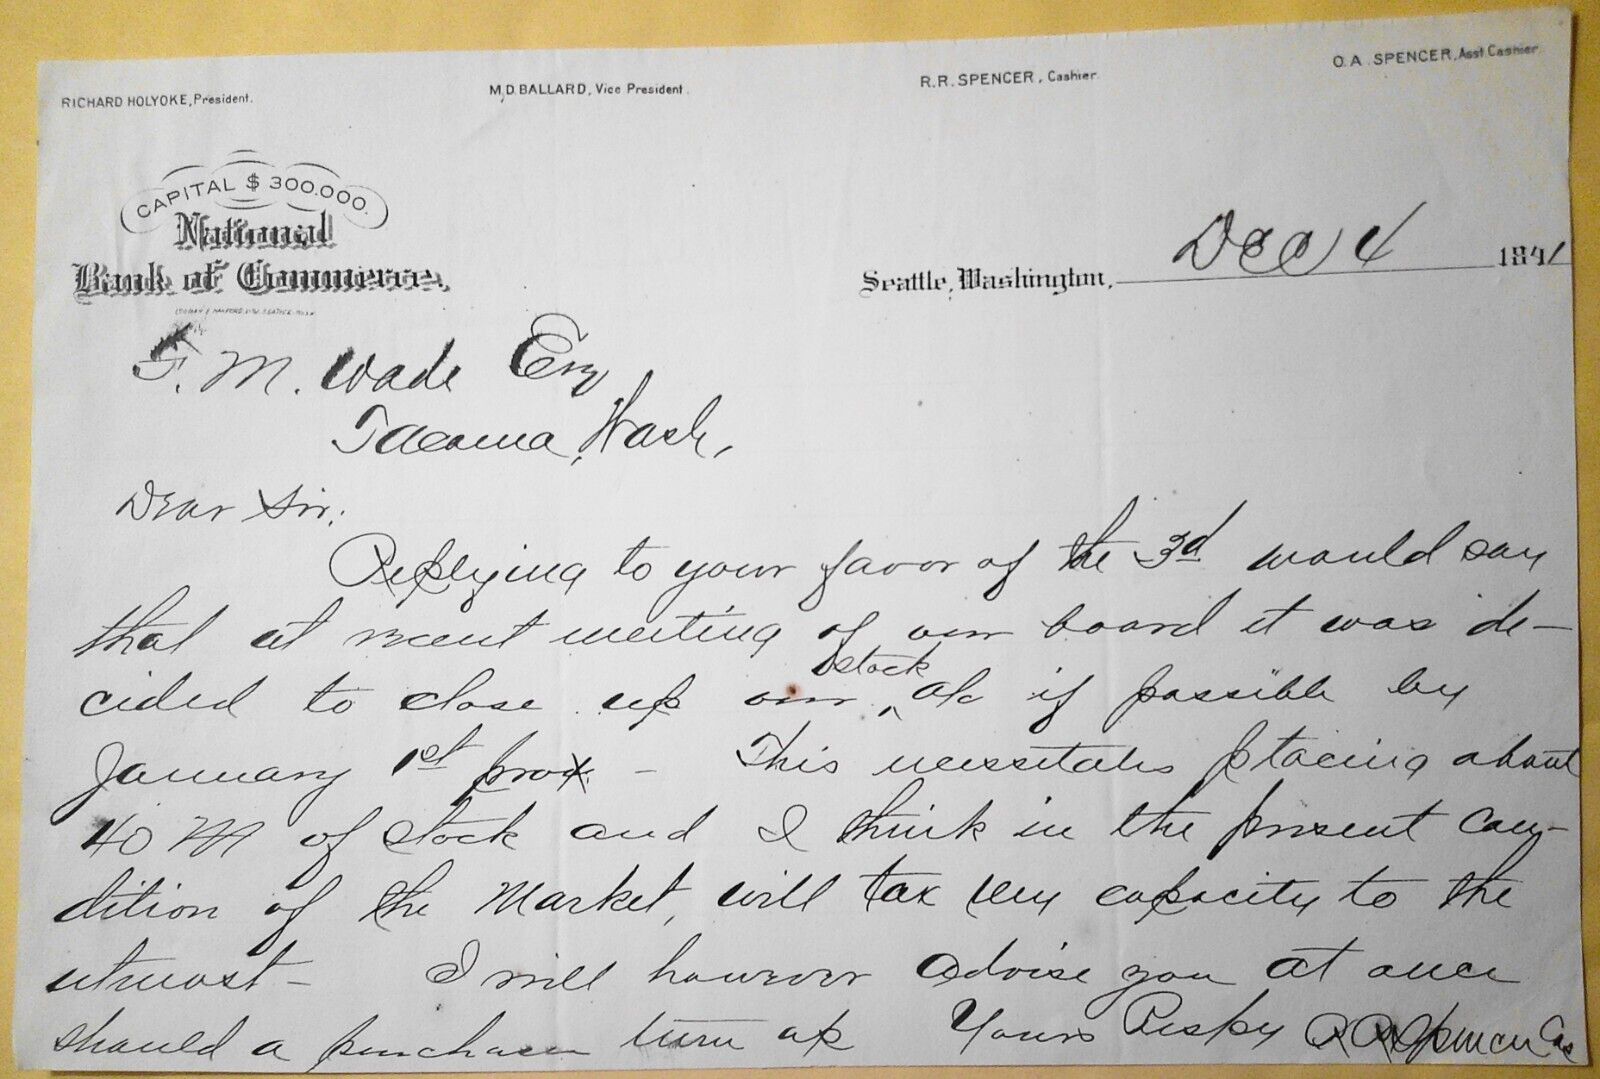 RICHARD HOLYOKE, President.
M.D. BALLARD, Vice President.
R.R. SPENCER, Cashier.
O.A. SPENCER, Asst. Cashier.
CAPITAL $300.000.
National
Bank of Commerce,
Seattle, Washington, Dec 4 1891
F. M. Wade Esq
Tacoma, Wash,
Dear Sir;
Replying to your favor of the 3d would say
that at recent meeting of our board it was de-
cided to close up our ^ stock a/c if possible by
January 1st prox - This necessitates placing about
40 M of stock and I think in the present con-
dition of the Market, will tax my capacity to the
utmost - I will however advise you at once
should a purchaser turn up Yours Respy R R Spencer Cas